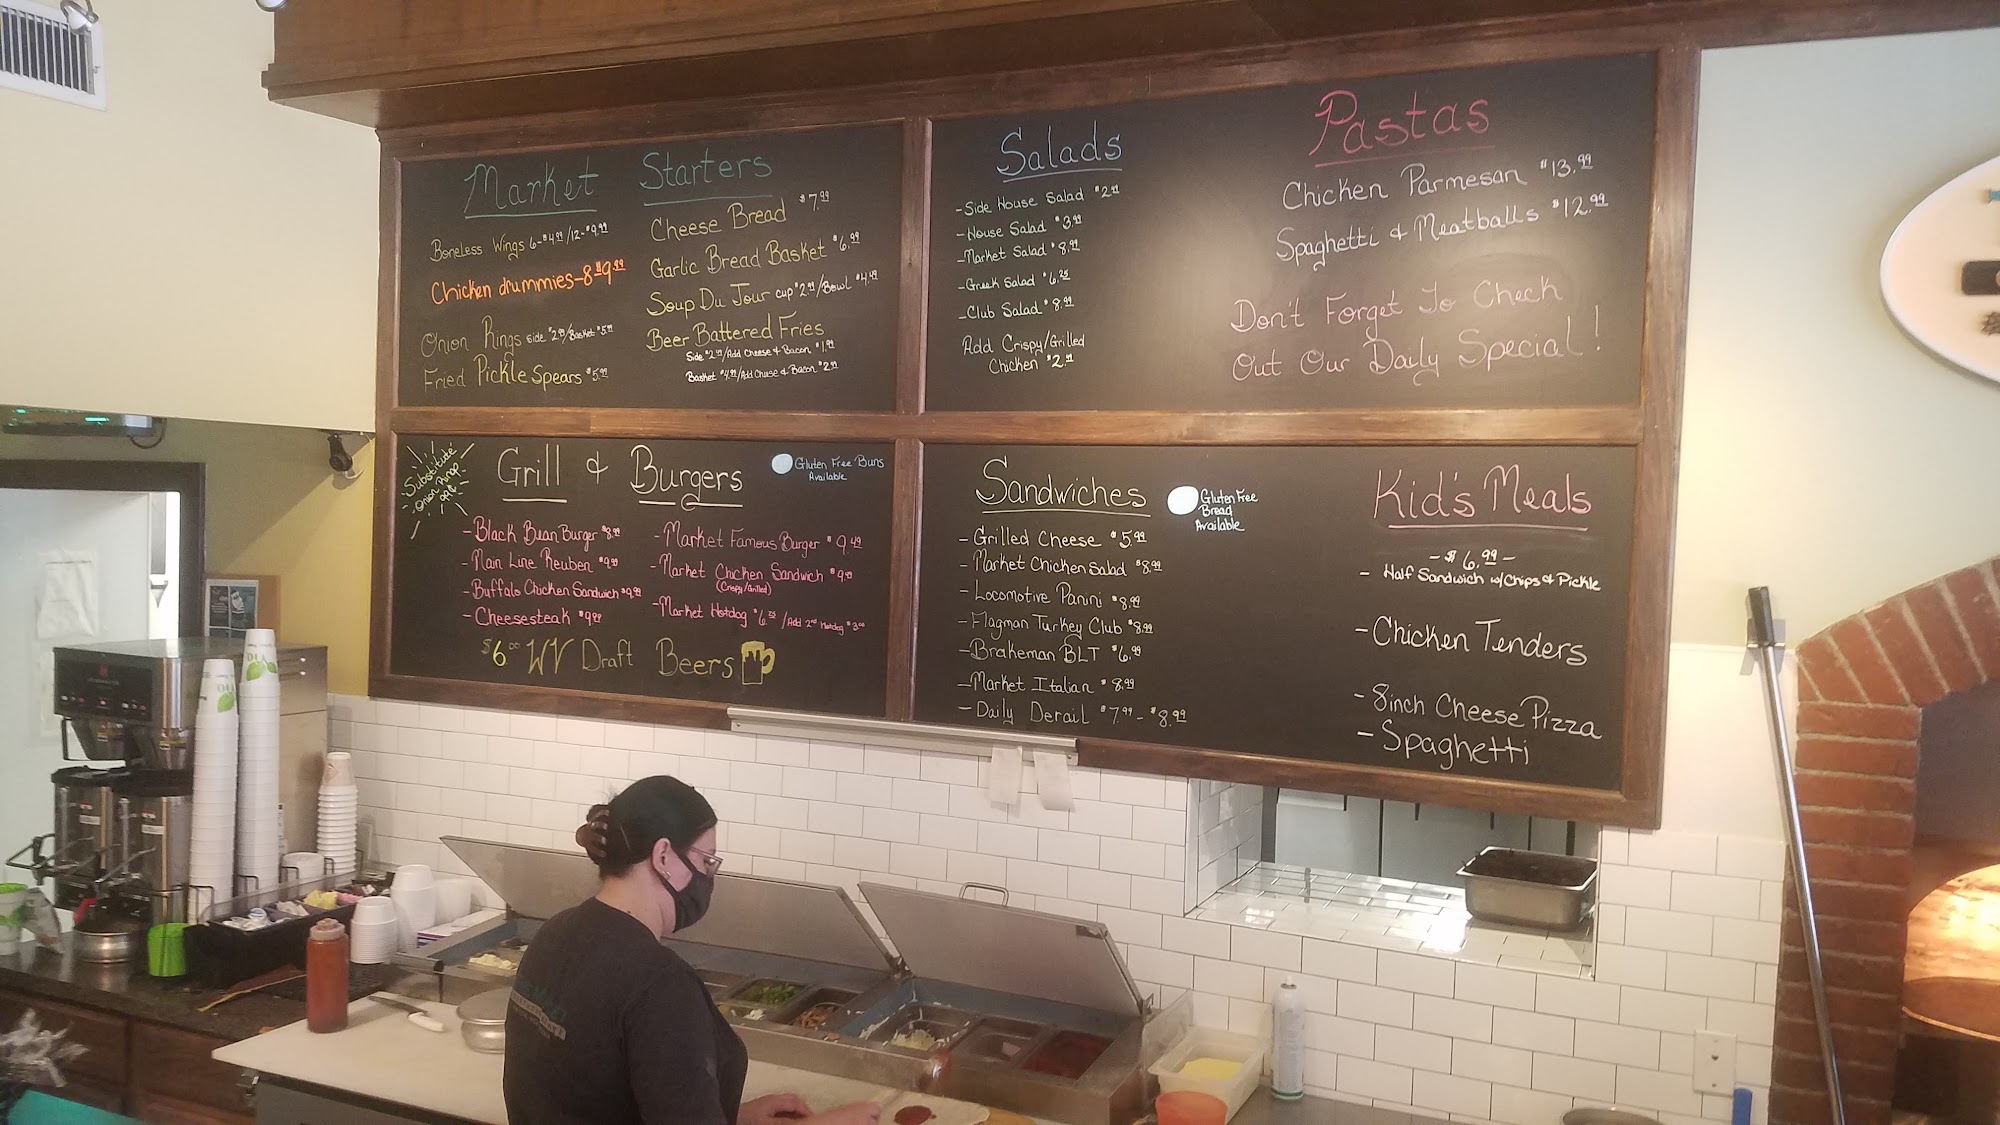 Market Starters
Boneless Wings 6-$4.99/12-$9.99
Chicken drummies-8 $9.99
Onion Rings side $2.99/Basket $5.99
Fried Pickle Spears $5.99
Cheese Bread $7.99
Garlic Bread Basket $6.99
Soup Du Jour cup $2.99/Bowl $4.49
Beer Battered Fries
Side $2.49/Add Cheese & Bacon $1.99
Basket $4.99/Add Cheese & Bacon $2.99
Salads
-Side House Salad $2.99
-House Salad $3.99
-Market Salad $8.99
-Greek Salad $6.25
-Club Salad $8.99
Add Crispy/Grilled
Chicken $2.99
Pastas
Chicken Parmesan $13.99
Spaghetti & Meatballs $12.99
Don't Forget To Check
Out Our Daily Special!
Substitute
Onion Rings
99¢
Grill & Burgers
Gluten Free Buns
Available
-Black Bean Burger $8.99
-Main Line Reuben $9.99
-Buffalo Chicken Sandwich $9.99
-Cheesesteak $9.99
-Market Famous Burger $9.49
-Market Chicken Sandwich $9.49
(Crispy/Grilled)
-Market Hotdog $6.25/Add 2nd Hotdog $3.00
$6.00 WV Draft Beers
Sandwiches
Gluten Free
Bread
Available
-Grilled Cheese $5.99
-Market Chicken Salad $8.99
-Locomotive Panini $8.99
-Flagman Turkey Club $8.99
-Brakeman BLT $6.99
-Market Italian $8.99
-Daily Derail $7.99-$8.99
Kid's Meals
-$6.99-
- Half Sandwich w/Chips & Pickle
-Chicken Tenders
-8inch Cheese Pizza
-Spaghetti